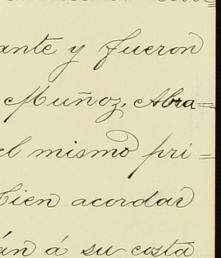 ante y fueron
Muñoz, Abra=
el mismo pri=
bien acordar
án á su costa